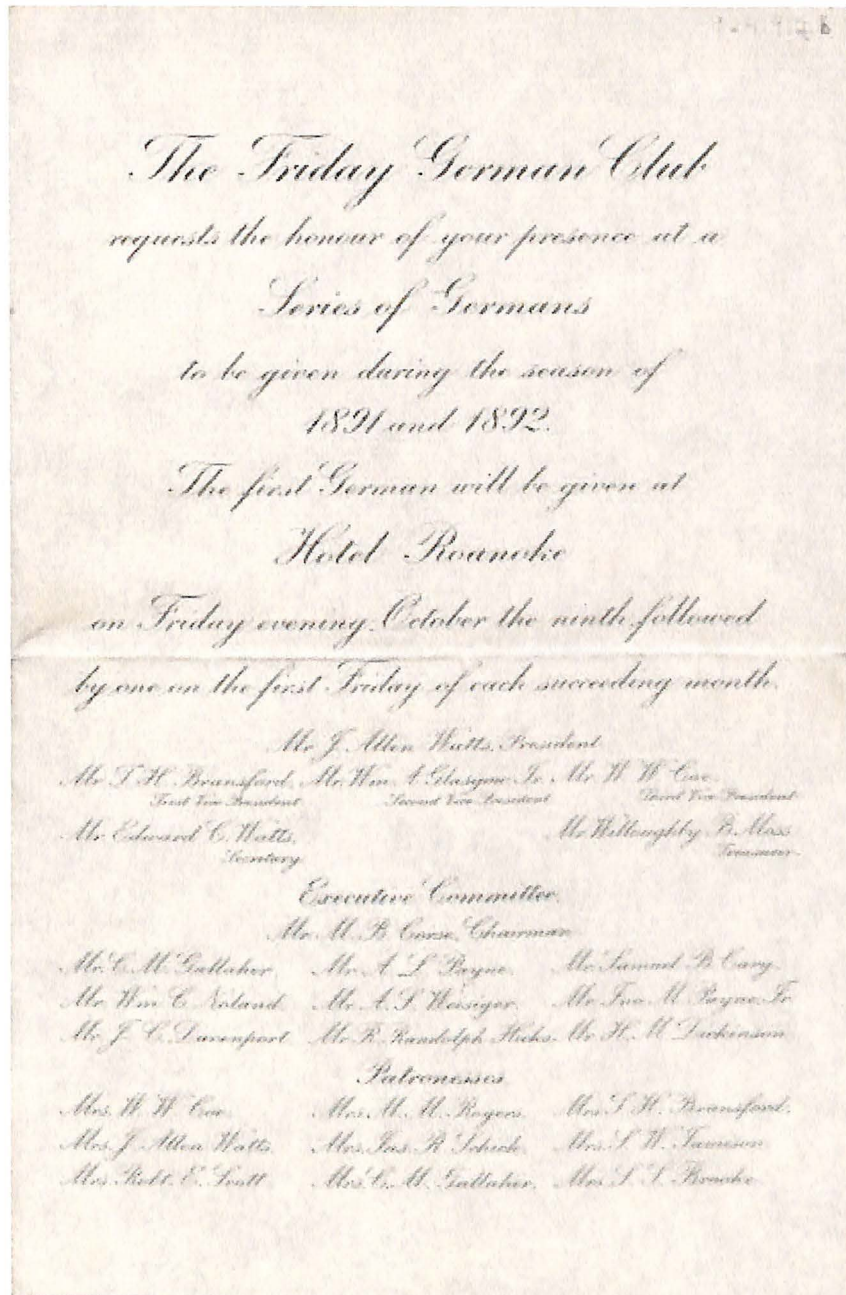 The Friday German Club
requests the honour of your presence at a
Series of Germans
to be given during the season of
1891 and 1892.
The first German will be given at
Hotel Roanoke
on Friday evening, October the ninth, followed
by one on the first Friday of each succeeding month.
Mr J. Allen Watts, President
Mr T. H. Bransford, Mr. Wm. A Glasgow Jr. Mr W. W. Coe.
First Vice President Second Vice President Third Vice President
Mr Edward C. Watts, Mr Willoughby B. Moss
Secretary Treasurer
Executive Committee.
Mr. M. B. Corse, Chairman
Mr. C. M. Gallaher, Mr. A. L. Payne, Mr. Samuel B. Cary,
Mr. Wm C. Noland, Mr. A. S. Weisiger, Mr. Jno. M. Payne, Jr.
Mr. J. C. Davenport Mr R. Randolph Hicks. Mr H. M. Dickinson
Patronesses
Mrs. W. W. Coe, Mrs. M. M. Rogers, Mrs. T. H. Bransford,
Mrs. J. Allen Watts, Mrs. Jas. R. Schick, Mrs. S. W. Jameson
Mrs. Robt. E. Scott Mrs. C. M. Gallaher, Mrs S. S. Brooke